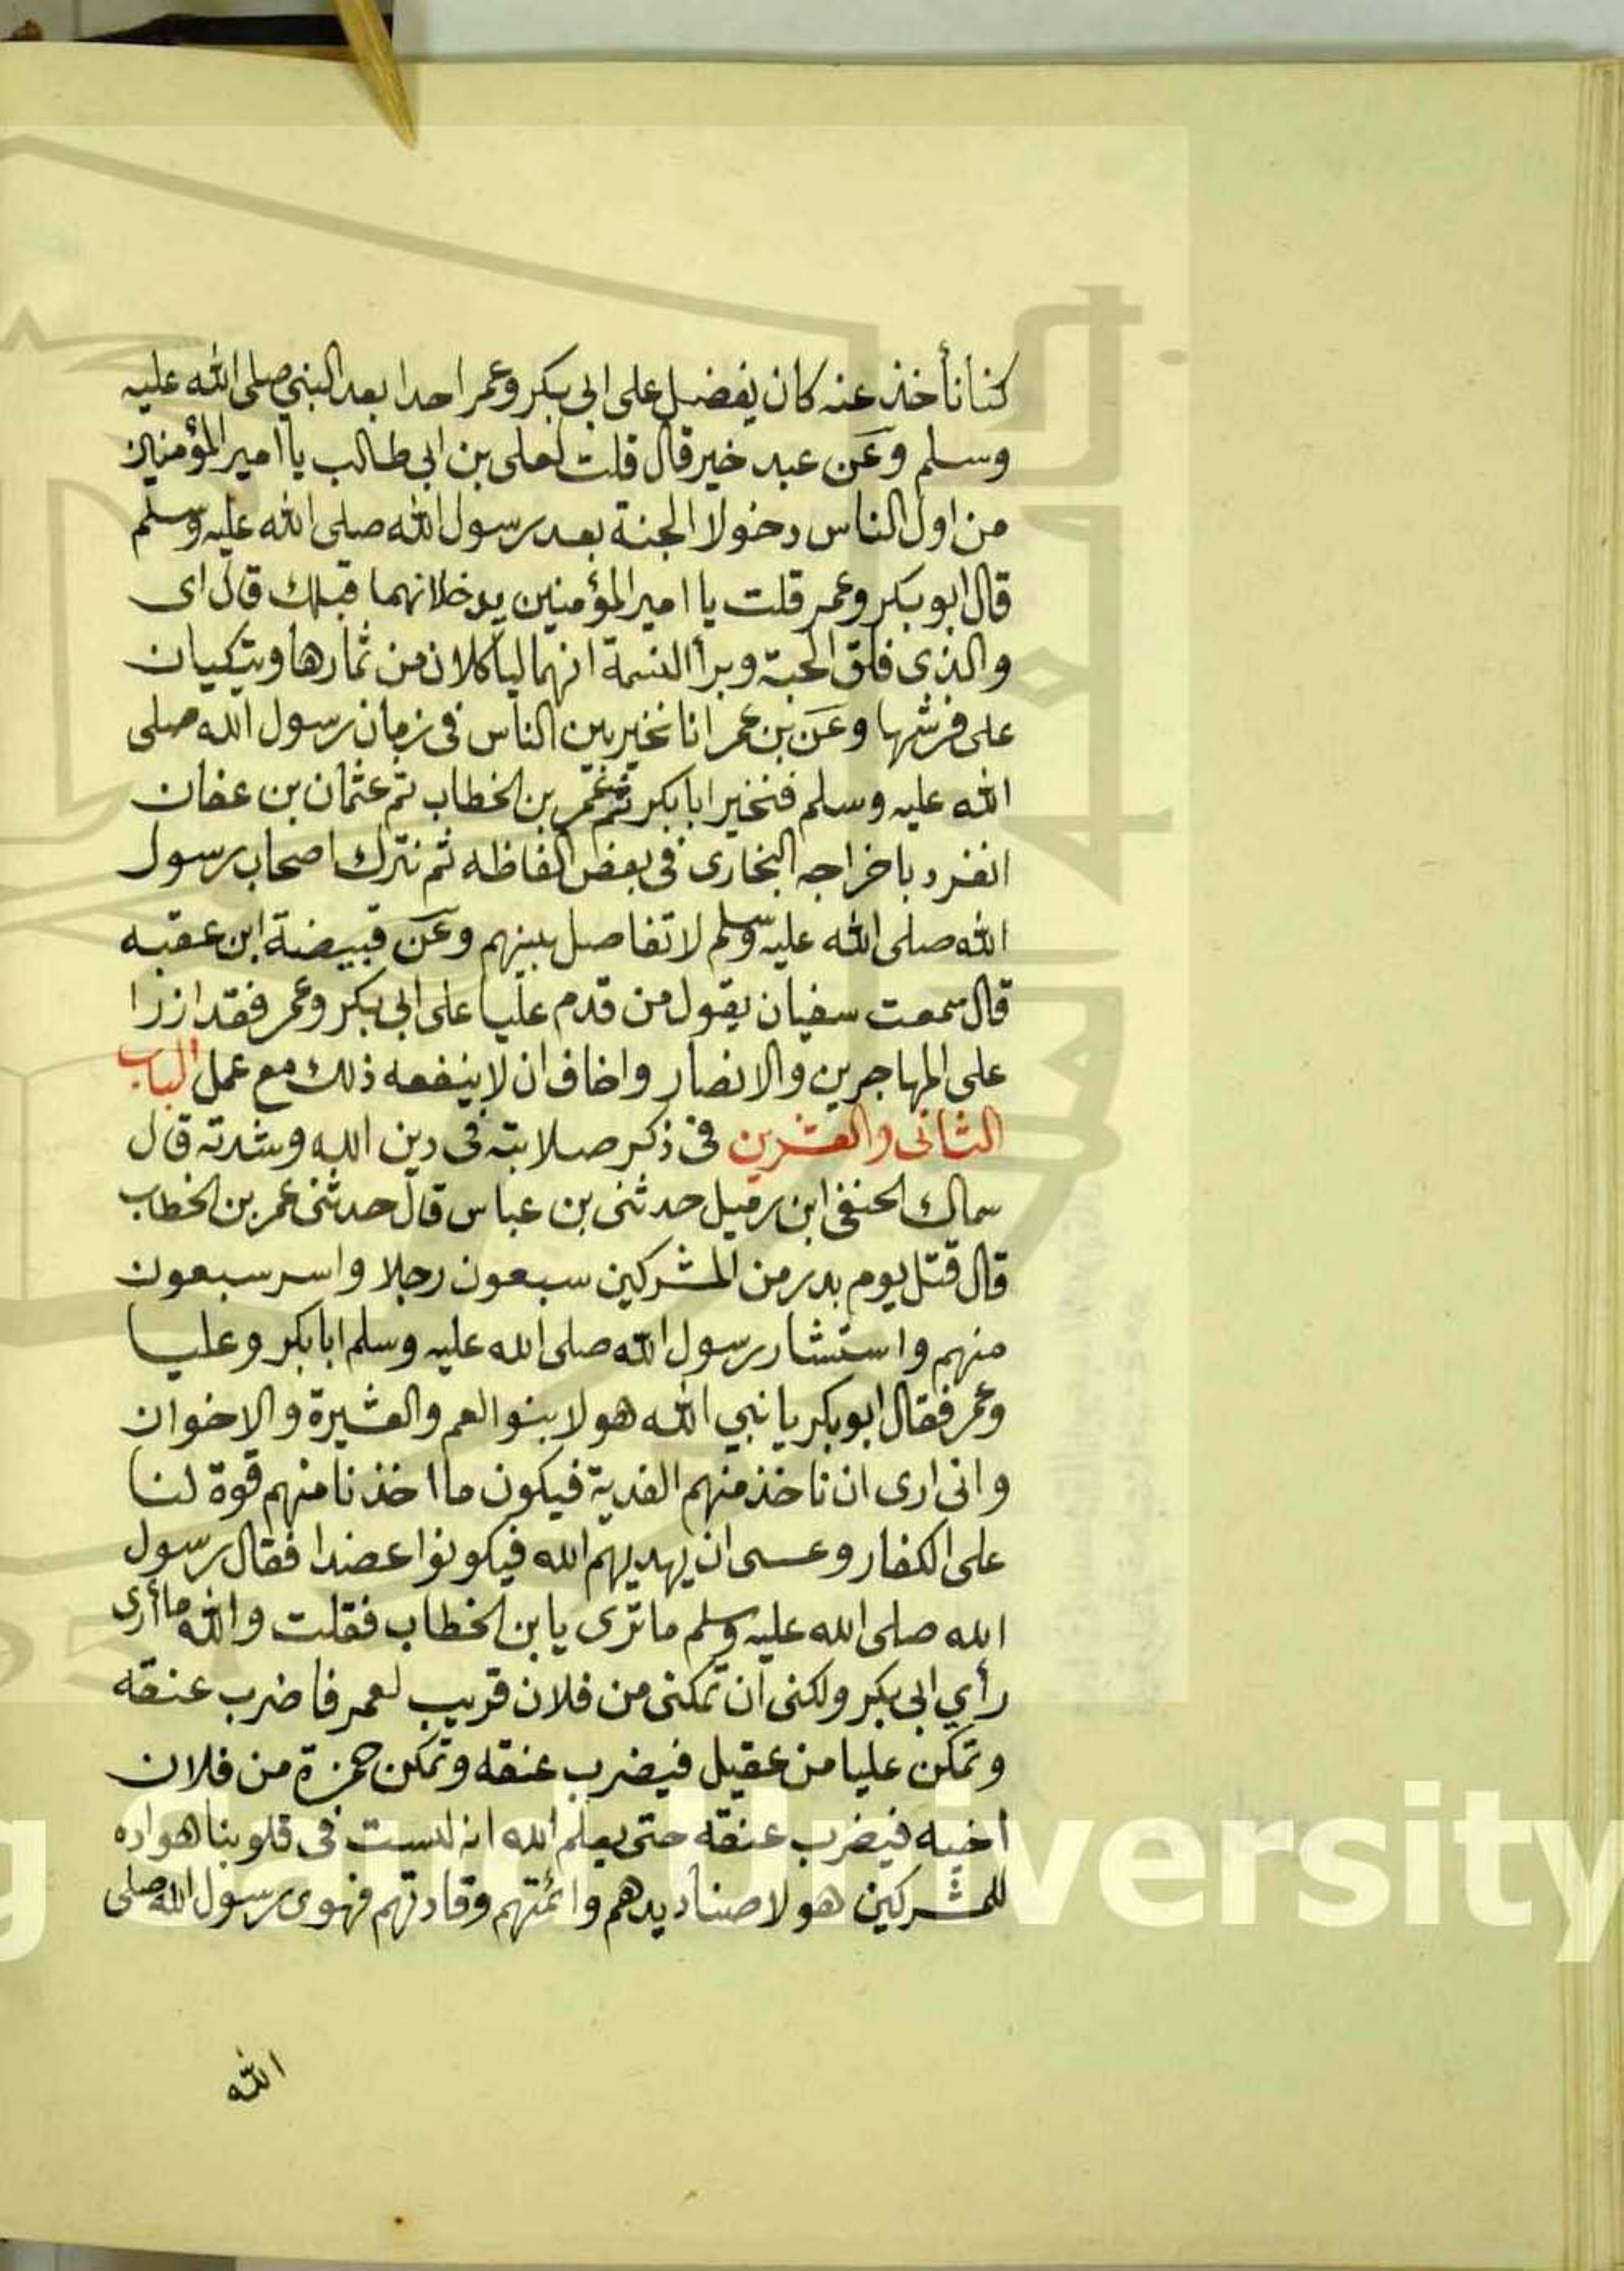 كنا نأخذ عنه كان يفضل على ابى بكر وعمر احدا بعد النبي صلى الله عليه
وسلم وعن عبد خير قال قلت لعلى بن ابى طالب يا امير المؤمنين
من اول الناس دخولا الجنة بعد رسول الله صلى الله عليه وسلم
قال ابو بكر وعمر قلت يا امير المؤمنين يدخلانهما قبلك قال اى
والذى فلق الحبة وبرأ النسمة انهما ليأكلان من ثمارها ويتكيان
على فرشها وعن بن عمر انا نخير بين الناس فى زمان رسول الله صلى
الله عليه وسلم فنخير ابا بكر ثم عمر بن الخطاب ثم عثمان بن عفان
انفرد باخراجه البخارى فى بعض الفاظه ثم نترك اصحاب رسول
الله صلى الله عليه وسلم لا تفاضل بينهم وعن قبيضة ابن عقبه
قال سمعت سفيان يقول من قدم عليا على ابى بكر وعمر فقد ازرا
على المهاجرين والانصار واخاف ان لا ينفعه ذلك مع عمل الباب
الثانى والعشرين فى ذكر صلابته فى دين الله وشدته قال
سماك الحنفى ابن رميل حدثنى بن عباس قال حدثنى عمر بن الخطاب
قال قتل يوم بدر من المشركين سبعون رجلا واسر سبعون
منهم واستشار رسول الله صلى الله عليه وسلم ابا بكر وعليا
وعمر فقال ابو بكر يا نبي الله هولا بنوا العم والعشيرة والاخوان
وانى ارى ان ناخذ منهم الفدية فيكون ما اخذنا منهم قوة لنا
على الكفار وعسى ان يهديهم الله فيكونوا عضدا فقال رسول
الله صلى الله عليه وسلم ما ترى يا بن الخطاب فقلت والله ما أرى
رأي ابى بكر ولكنى ان تمكنى من فلان قريب لعمر فاضرب عنقه
وتمكن عليا من عقيل فيضرب عنقه وتمكن حمزة من فلان
اخيه فيضرب عنقه حتى يعلم الله انه ليست فى قلوبنا هواده
للمشركين هولا صناديدهم وائمتهم وقادتهم فهوى رسول الله صلى
الله
versity